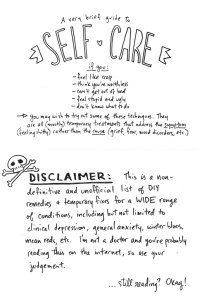 A very brief guide to
SELF-CARE
if you:
- feel like crap
- think you're worthless
- can't get out of bed
- feel stupid and ugly
- don't know what to do
→ you may wish to try out some of these techniques. They
are all (mostly) temporary treatments that address the symptom
(feeling shitty) rather than the cause (grief, fear, mood disorders, etc.)
DISCLAIMER: This is a non-
definitive and unofficial list of DIY
remedies + temporary fixes for a WIDE range
of conditions, including but not limited to
clinical depression, general anxiety, winter blues,
mean reds, etc. I'm not a doctor and you're probably
reading this on the internet, so use your
judgement.
...still reading? Okay!